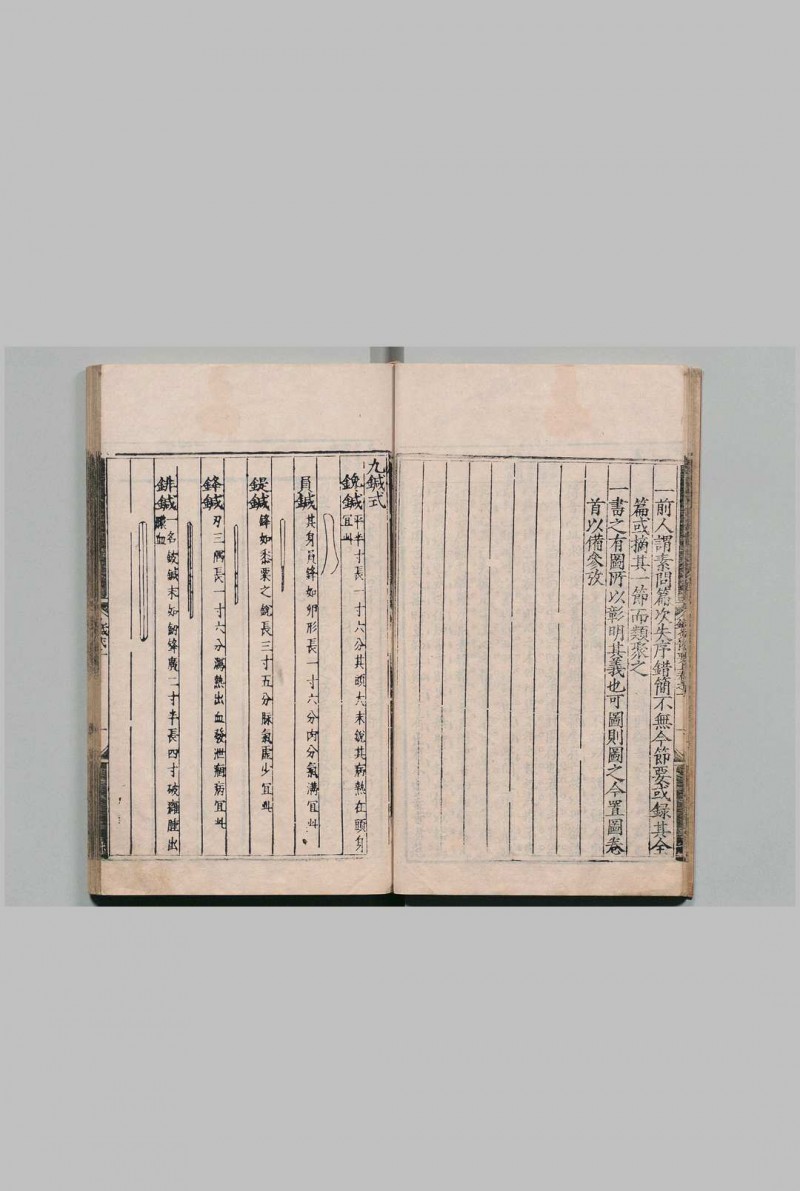 一前人謂素問篇次失序錯簡不無今節要或錄其全
篇或摘其一節而類聚之
一書之有圖所以彰明其義也可圖則圖之今置圖卷
首以備參攷
九鍼式
鑱鍼平半寸長一寸六分其頭大末銳其病熱在頭身
宜此
員鍼其身員鋒如卵形長一寸六分肉分氣滿宜此
鍉鍼鋒如黍粟之銳長三寸五分脉氣虛少宜此
鋒鍼刃三隅長一寸六分瀉熱出血發泄痼病宜此
鈹鍼一名鈹鍼末如劒鋒廣二寸半長四寸破癰腫出
膿血